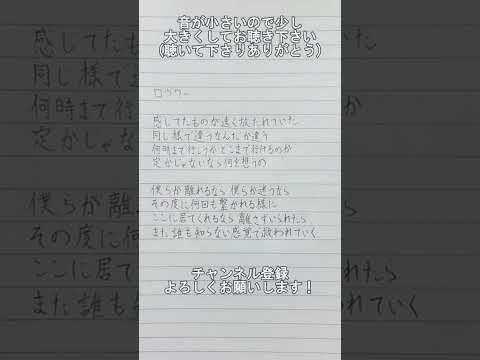 音が小さいので少し
大きくしてお聴き下さい
(聴いて下さりありがとう)
ロウワー
感じてたものが遠く放たれていた
同じ様で違うなんだか違う
何時まで行こうかどこまで行けるのか
定かじゃないなら何を想うの
僕らが離れるなら 僕らが迷うなら
その度に何回も繋がれる様に
ここに居てくれるなら 離さずいられたら
まだ誰も知らない感覚で救われていく
チャンネル登録
よろしくお願いします！